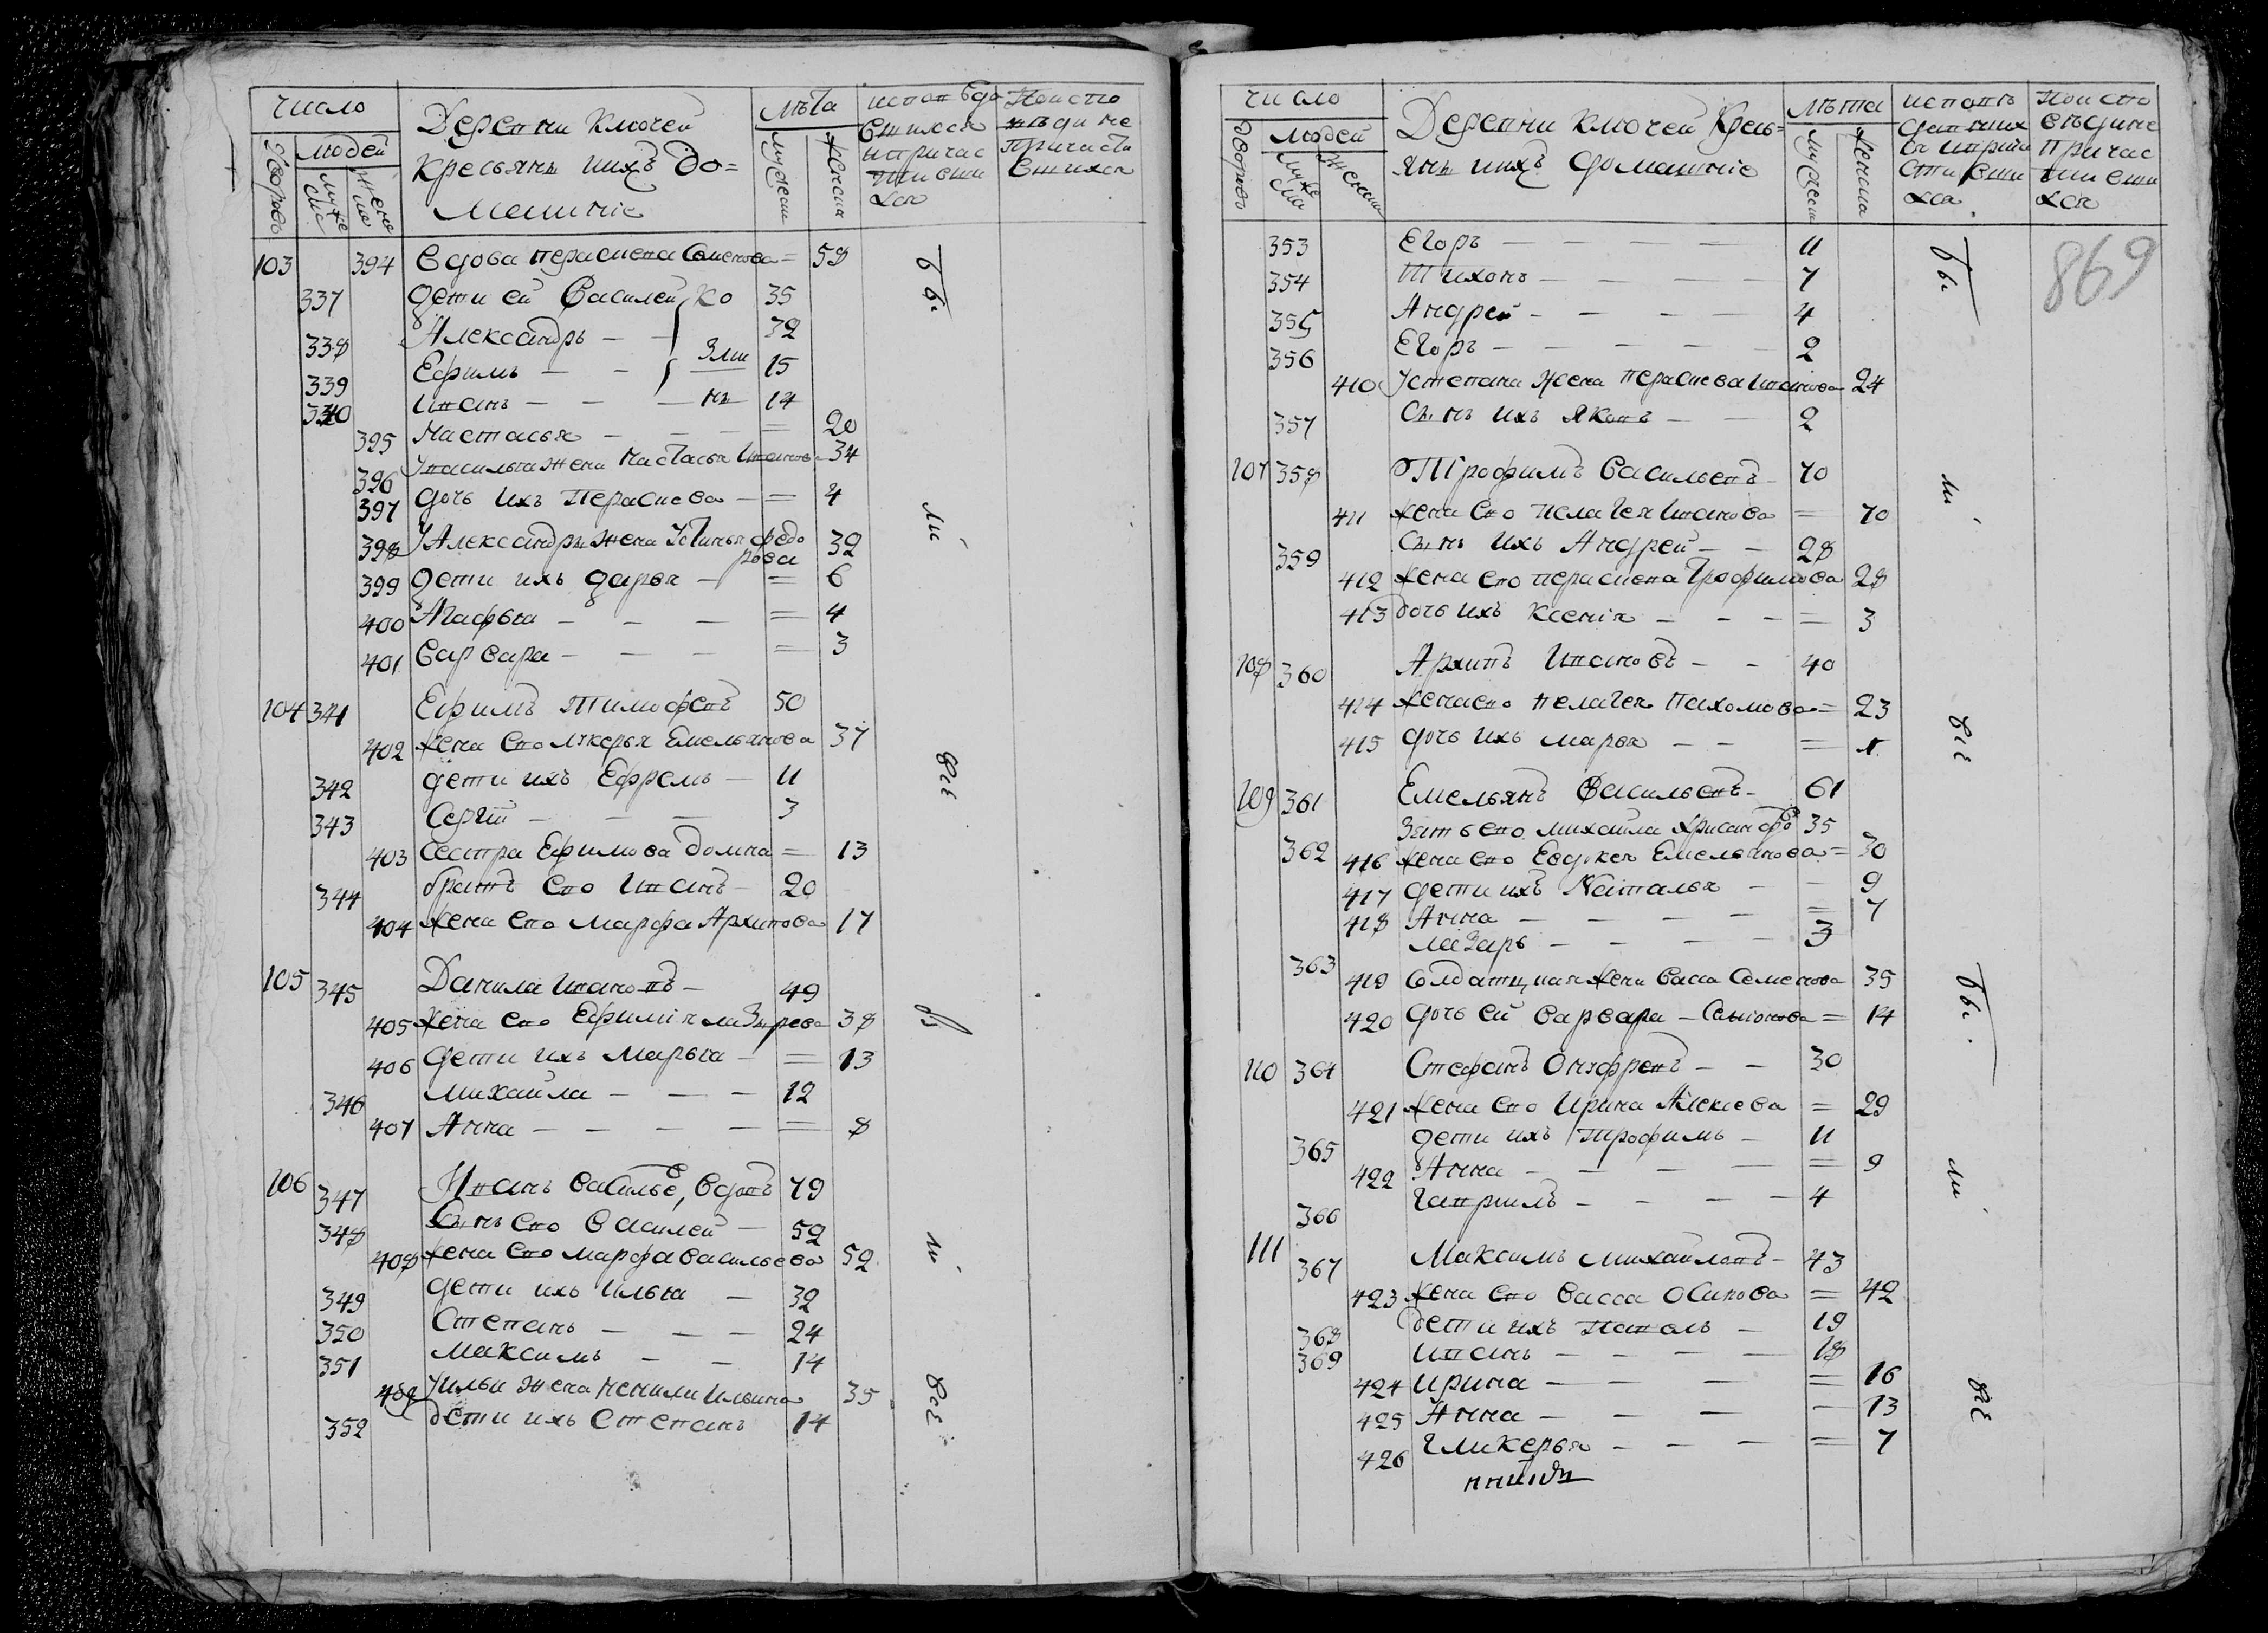 число
людей
дворовъ
мужеска
женска
Деревни Ключей
Кресьянъ ихъ до=
машніе
лѣта
мужеска
женска
исповѣдо
вшихся
и причас
тивши
хся
103 394 вдова Парасковья Семенова = 58
337 дети ей Василей 35
338 Александръ — — 32
339 Ефимъ — — 15
340 Иванъ — — — 14
395 Настасья — — — = 20
396 У Василья жена Настасья Иванова 34
397 дочь ихъ Парасковья — = 4
398 У Александры жена Устинья Федо
рова 32
399 дети ихъ Дарья — = 6
400 Агафья — — — = 4
401 Варвара — — — = 3
104 341 Ефимъ Тимофевъ 50
402 жена ево Лукерья Емельянова 37
342 дети ихъ Ефремъ — 11
343 Сергей — — — 3
403 сестра Ефимова Домна = 13
344 братъ ево Иванъ — 20
404 жена ево Марфа Архипова 17
105 345 Данила Ивановъ — 49
405 жена ево Ефимія Лазырева 38
406 дети ихъ Марья — = 13
346 Михаила — — — 12
407 Анна — — — — = 8
106 347 Иванъ Василье, вдовъ 79
348 сынъ ево Василей — 52
408 жена ево Марфа Васильева 52
349 дети ихъ Илья — 32
350 Степанъ — — — 24
351 Максимъ — — 14
409 У Ильи жена Ненила Ильина 35
352 дети ихъ Степанъ 14
бы
ли
всѣ
бы
ли
всѣ
число
людей
дворовъ
мужеска
женска
Деревни Ключей Кресь=
янъ ихъ домашніе
лѣта
мужеска
женска
869
353 Егоръ — — — — 11
354 Тихонъ — — — — 7
355 Андрей — — — — 4
356 Егоръ — — — — — 2
410 У Степана жена Парасковья Иванова 24
357 сынъ ихъ Яковъ — — 2
107 358 Трофимъ Васильевъ 70
411 жена ево Пелагея Иванова = 70
359 сынъ ихъ Андрей — — 28
412 жена ево Парасковья Трофимова 28
413 дочь ихъ Ксенія — — — = 3
108 360 Архипъ Ивановъ — — 40
414 жена ево Пелагея Пахомова = 23
415 дочь ихъ Марья — — = 1
109 361 Емельянъ Васильевъ — 61
362 зять ево Михаила Хрисанфо 35
416 жена ево Евдокея Емельянова = 30
417 дети ихъ Наталья — — 9
418 Анна — — — — = 7
363 Лазарь — — — — 3
419 Солдатцкая жена Васа Семенова 35
420 дочь ей Варвара — Семионова = 14
110 364 Стефанъ Онуфревъ — — 30
421 жена ево Ирина Алексеева = 29
365 дети ихъ Трофимъ — 11
422 Анна — — — — = 9
366 Гаврилъ — — — — 4
111 367 Максимъ Михайловъ — 43
423 жена ево Васса Осипова = 42
368 дети ихъ Павелъ — 19
369 Иванъ — — — — 18
424 Ирина — — — = 16
425 Анна — — — — 13
426 Гликерья — — — = 7
бы
ли
всѣ
бы
ли
всѣ